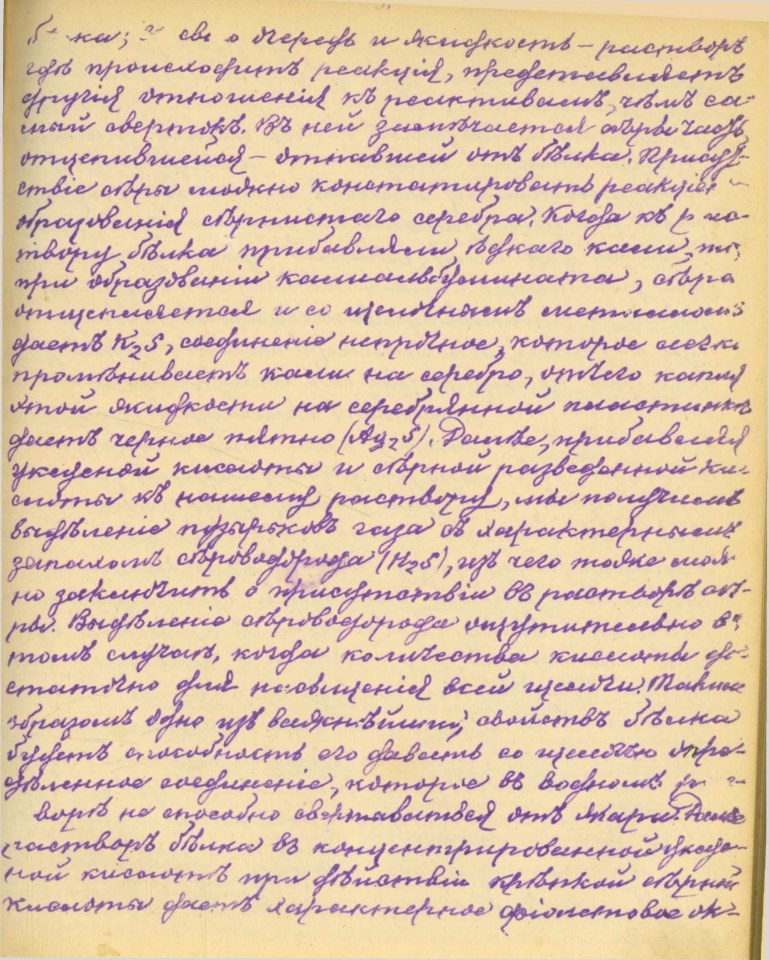 бѣлка; въ свою очередь и жидкость – растворъ
гдѣ происходитъ реакція, представляетъ
другія отношенія къ реактивамъ, чѣмъ са-
мый свертокъ. Въ ней замѣчается сѣры часть,
отщепившейся – отпавшей отъ бѣлка. Присут-
ствіе сѣры можно констатировать реакціей
образованія сѣрнистаго серебра. Когда къ рас-
твору бѣлка прибавляли ѣдкаго кали, то,
при образованіи каліальбумината, сѣра
отщепляется и со щелочнымъ металломъ
даетъ K₂S, соединеніе непрочное, которое легко
промѣниваетъ кали на серебро, отчего капля
этой жидкости на серебрянной пластинкѣ
даетъ черное пятно (Ag₂S). Далѣе, прибавляя
уксусной кислоты и сѣрной разведенной ки-
слоты къ нашему раствору, мы получимъ
выдѣленіе пузырьковъ газа съ характернымъ
запахомъ сѣроводорода (H₂S), изъ чего тоже мож-
но заключить о присутствіи въ растворѣ сѣ-
ры. Выдѣленіе сѣроводорода ощутительно въ
томъ случаѣ, когда количества кислоты до-
статочно для насыщенія всей щелочи. Такимъ
образомъ одно изъ важнѣйшихъ свойствъ бѣлка
будетъ способность его давать со щелочью опре-
дѣленное соединеніе, которое въ водномъ раст-
ворѣ не способно свертываться отъ жара. Далѣе
растворъ бѣлка въ концентрированной уксус-
ной кислотѣ при дѣйствіи крѣпкой сѣрной
кислоты даетъ характерное фіолетовое ок-